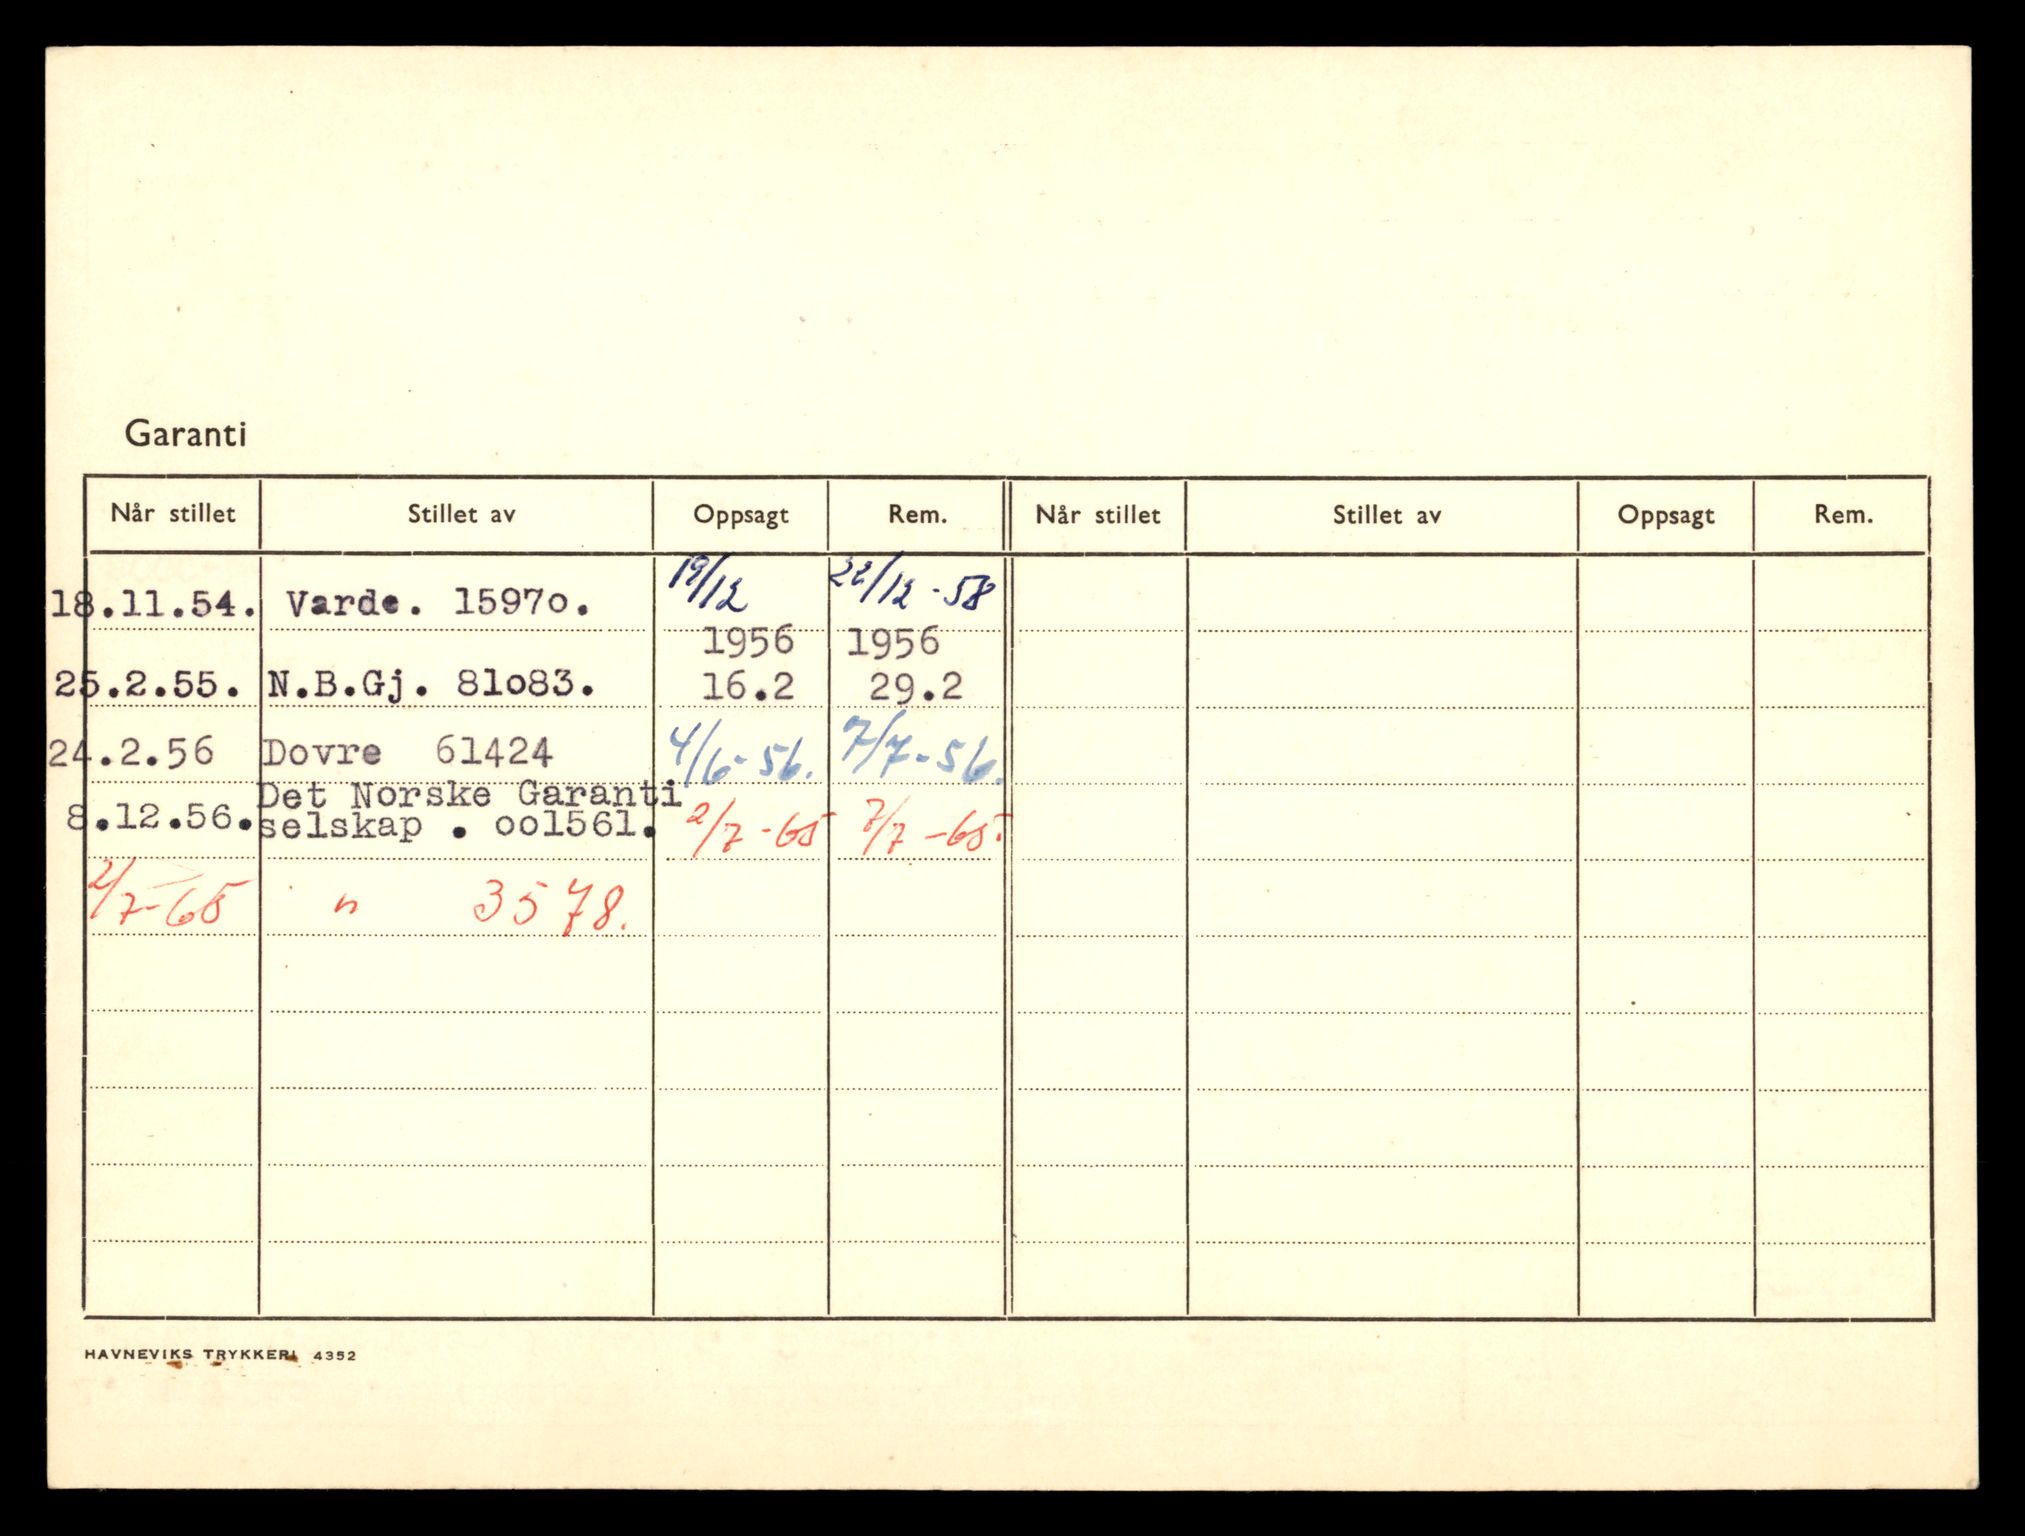 Garanti
Når stillet Stillet av Oppsagt Rem. Når stillet Stillet av Oppsagt Rem.
18.11.54. Varde. 1597o. 19/12 22/12-58
1956 1956
25.2.55. N.B.Gj. 81o83. 16.2 29.2
24.2.56 Dovre 61424 4/6-56. 7/7-56.
Det Norske Garanti
8.12.56. selskap . oo1561. 2/7-65 7/7-65.
2/7-65 " 3578.
HAVNEVIKS TRYKKERI 4352